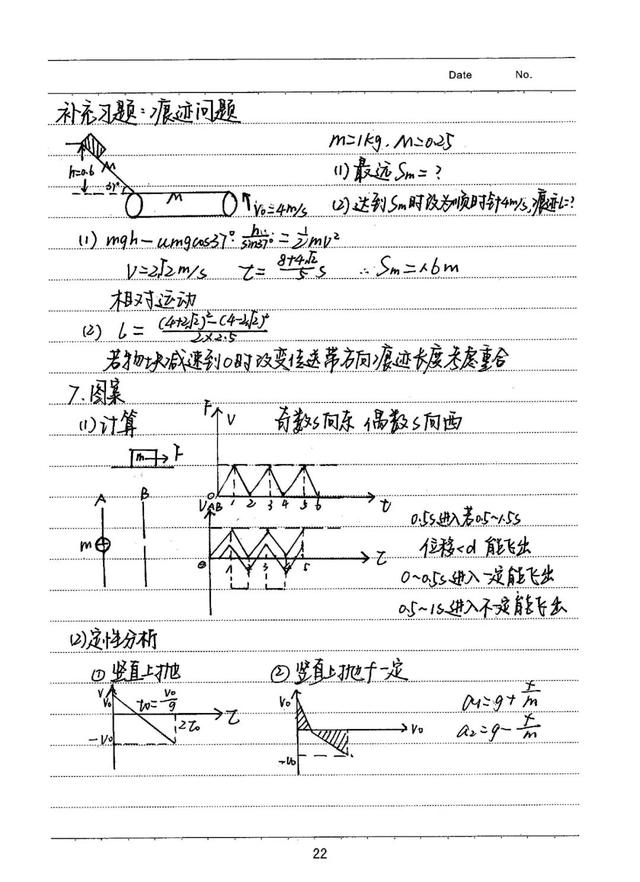 Date No.
补充习题：痕迹问题
m=1kg. M=0.25
h=0.6 M 37° M V₀=4m/s
(1) 最远 Sm=?
(2) 达到Sm时改为顺时针4m/s,痕迹L=?
(1) mgh-umgcos37°·h/sin37°=1/2mv²
V=2√2m/s t=(8+4√2)/5 s ∴Sm=1.6m
相对运动
(2) L=((4+2√2)²-(4-2√2)²)/(2×2.5)
若物块减速到0时改变传送带方向痕迹长度考虑重合
7.图案
(1)计算 F V 奇数s向东 偶数s向西
m F
0 1 2 3 4 5 6 t
A B VAB
m 0 1 2 3 4 5 t
0.5s进入若0.5~1.5s
位移<d 能飞出
0~0.5s进入一定能飞出
0.5~1s进入不一定能飞出
(2)定性分析
① 竖直上抛 ② 竖直上抛f一定
V V₀ t₀=V₀/g 2t₀ t -V₀
V₀ V₀ -V₀
a₁=g+f/m
a₂=g-f/m
22